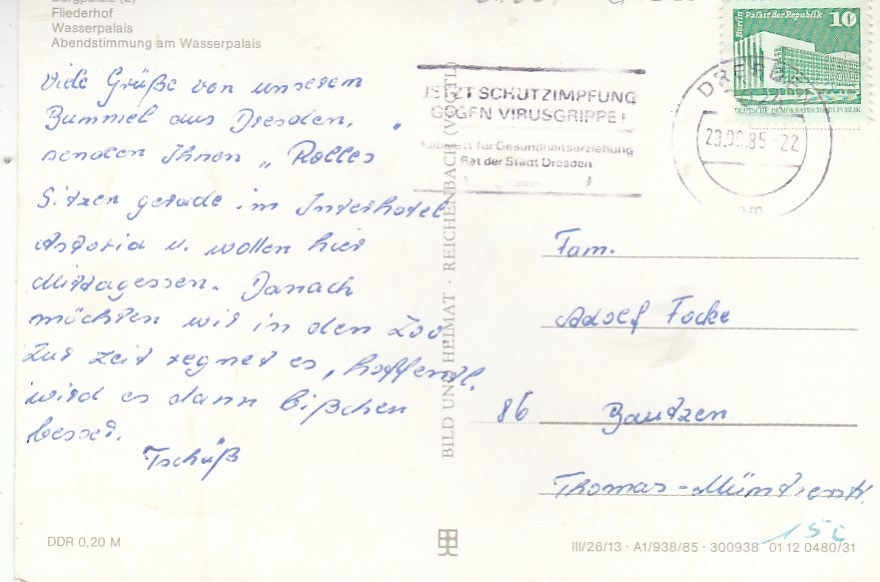 Bergpalais (2)
Fliederhof
Wasserpalais
Abendstimmung am Wasserpalais
Viele Grüße von unserem
Bummel aus Dresden,
senden Ihnen „ Rolles "
Sitzen gerade im Interhotel
Astoria u. wollen hier
Mittagessen. Danach
möchten wir in den Zoo
Zur Zeit regnet es, hoffentl.
wird es dann bißchen
besser.
Tschüß
DDR 0,20 M
BILD UND HEIMAT · REICHENBACH (VOGTL)
JETZT SCHUTZIMPFUNG
GEGEN VIRUSGRIPPE!
Kabinett für Gesundheitserziehung
Rat der Stadt Dresden
DRESDEN
23.09.85-22
Berlin, Palast der Republik 10
DEUTSCHE DEMOKRATISCHE REPUBLIK
Fam.
Adolf Focke
86 Bautzen
Thomas-Müntzerstr.
15c
III/26/13 · A1/938/85 · 300938 01 12 0480/31